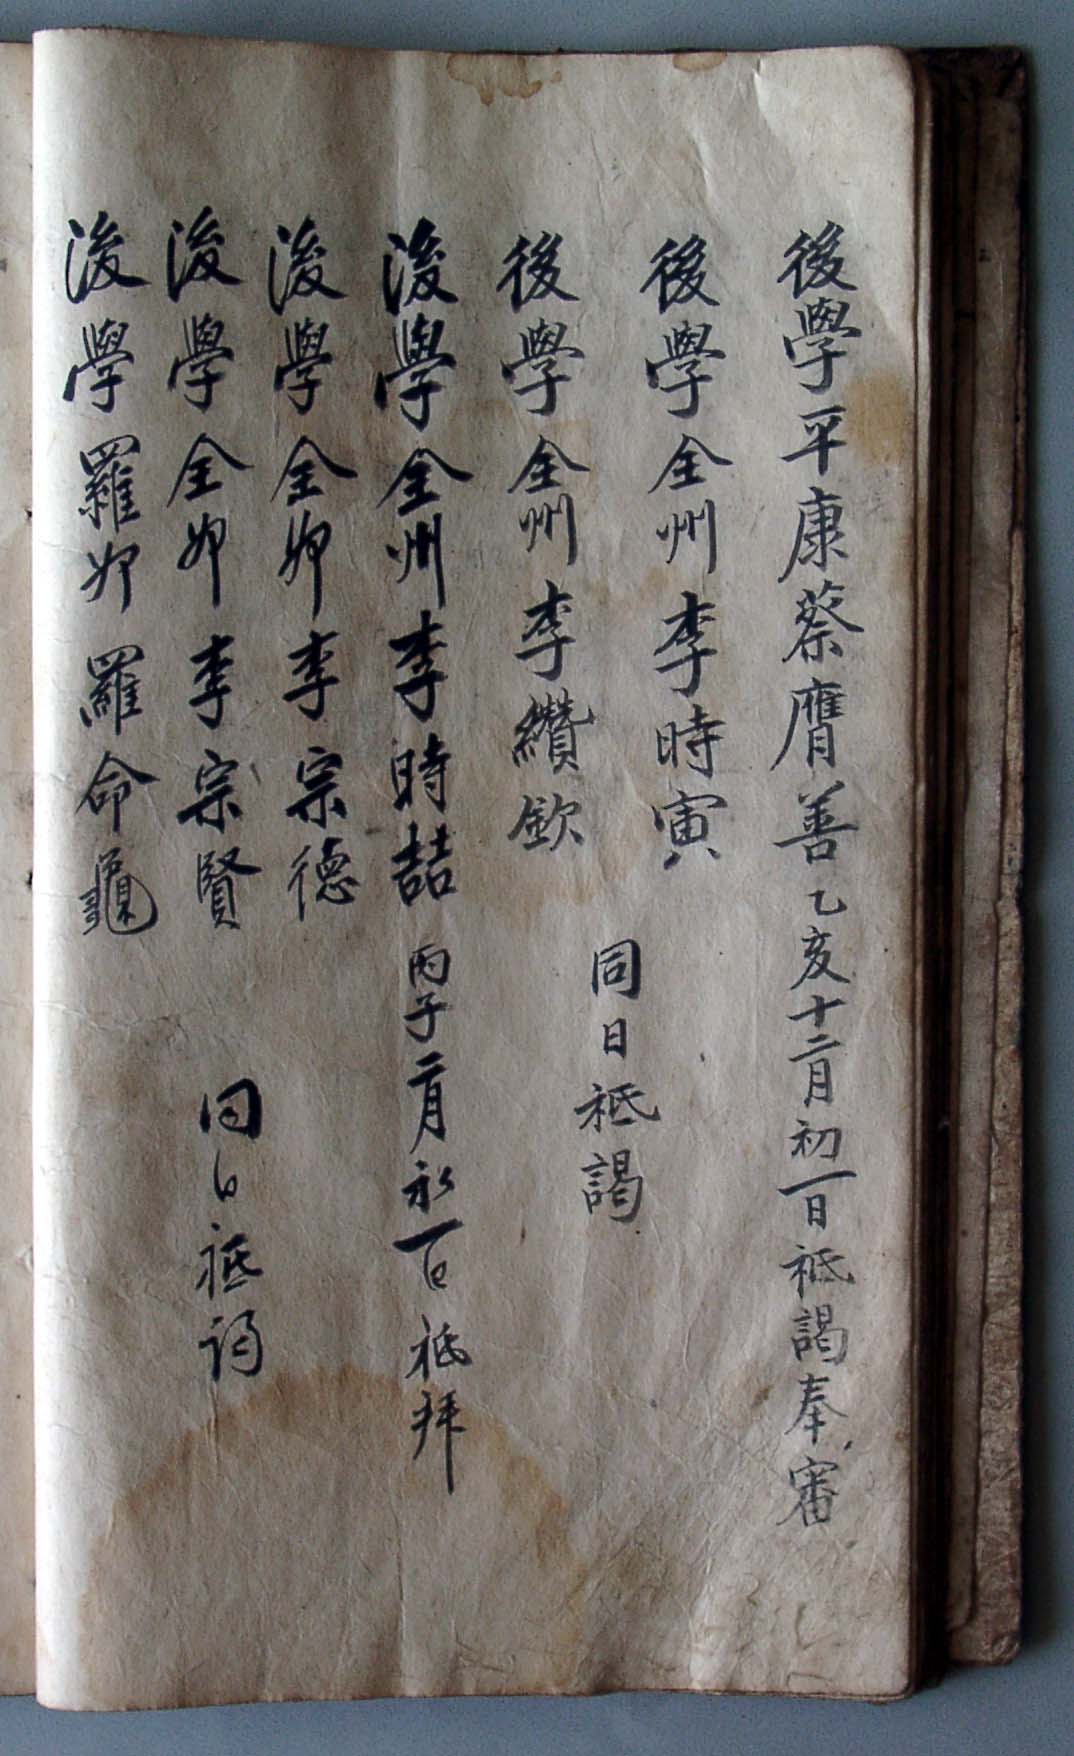 後學平康蔡膺善乙亥十二月初一日祗謁奉審
後學全州李時寅
同日祗謁
後學全州李纘欽
後學全州李時喆丙子二月初一日祗拜
後學全州李宗德
後學全州李宗賢
同日祗謁
後學羅州羅命龜